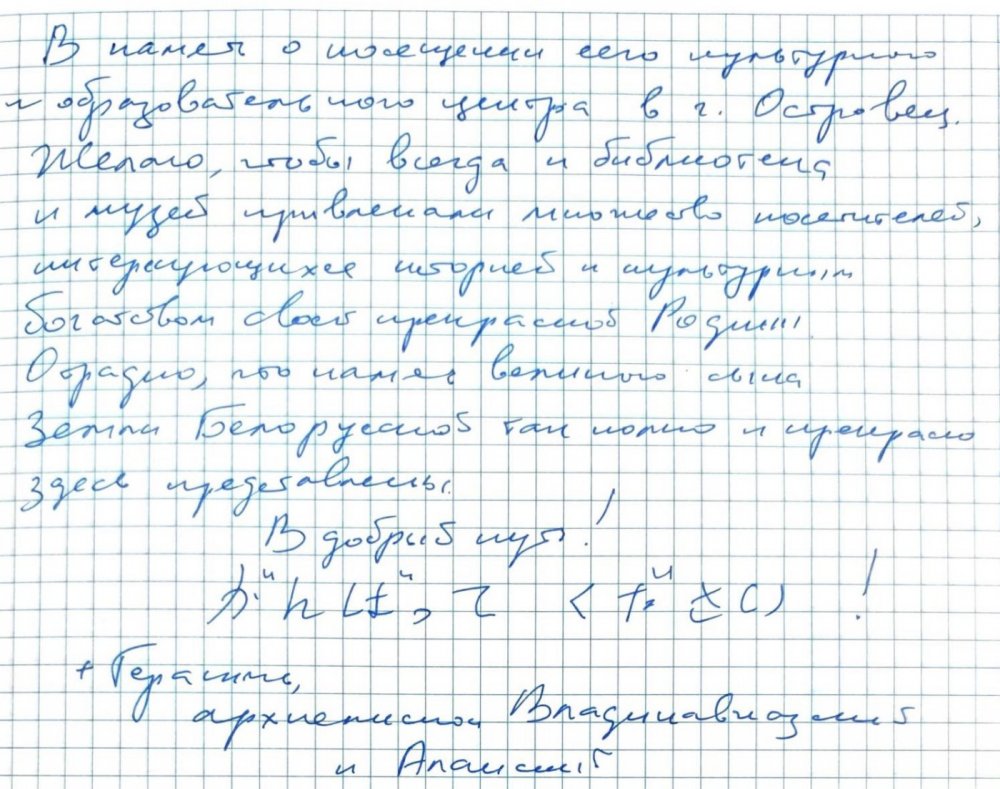 В память о посещении сего культурного
и образовательного центра в г. Островец.
Желаю, чтобы всегда и библиотека
и музей привлекали множество посетителей,
интересующихся историей и культурным
богатством своей прекрасной Родины.
Отрадно, что память великого сына
Земли Белорусской так полно и прекрасно
здесь представлены.
В добрый путь!
+ Герасим,
архиепископ Владикавказский
и Аланский